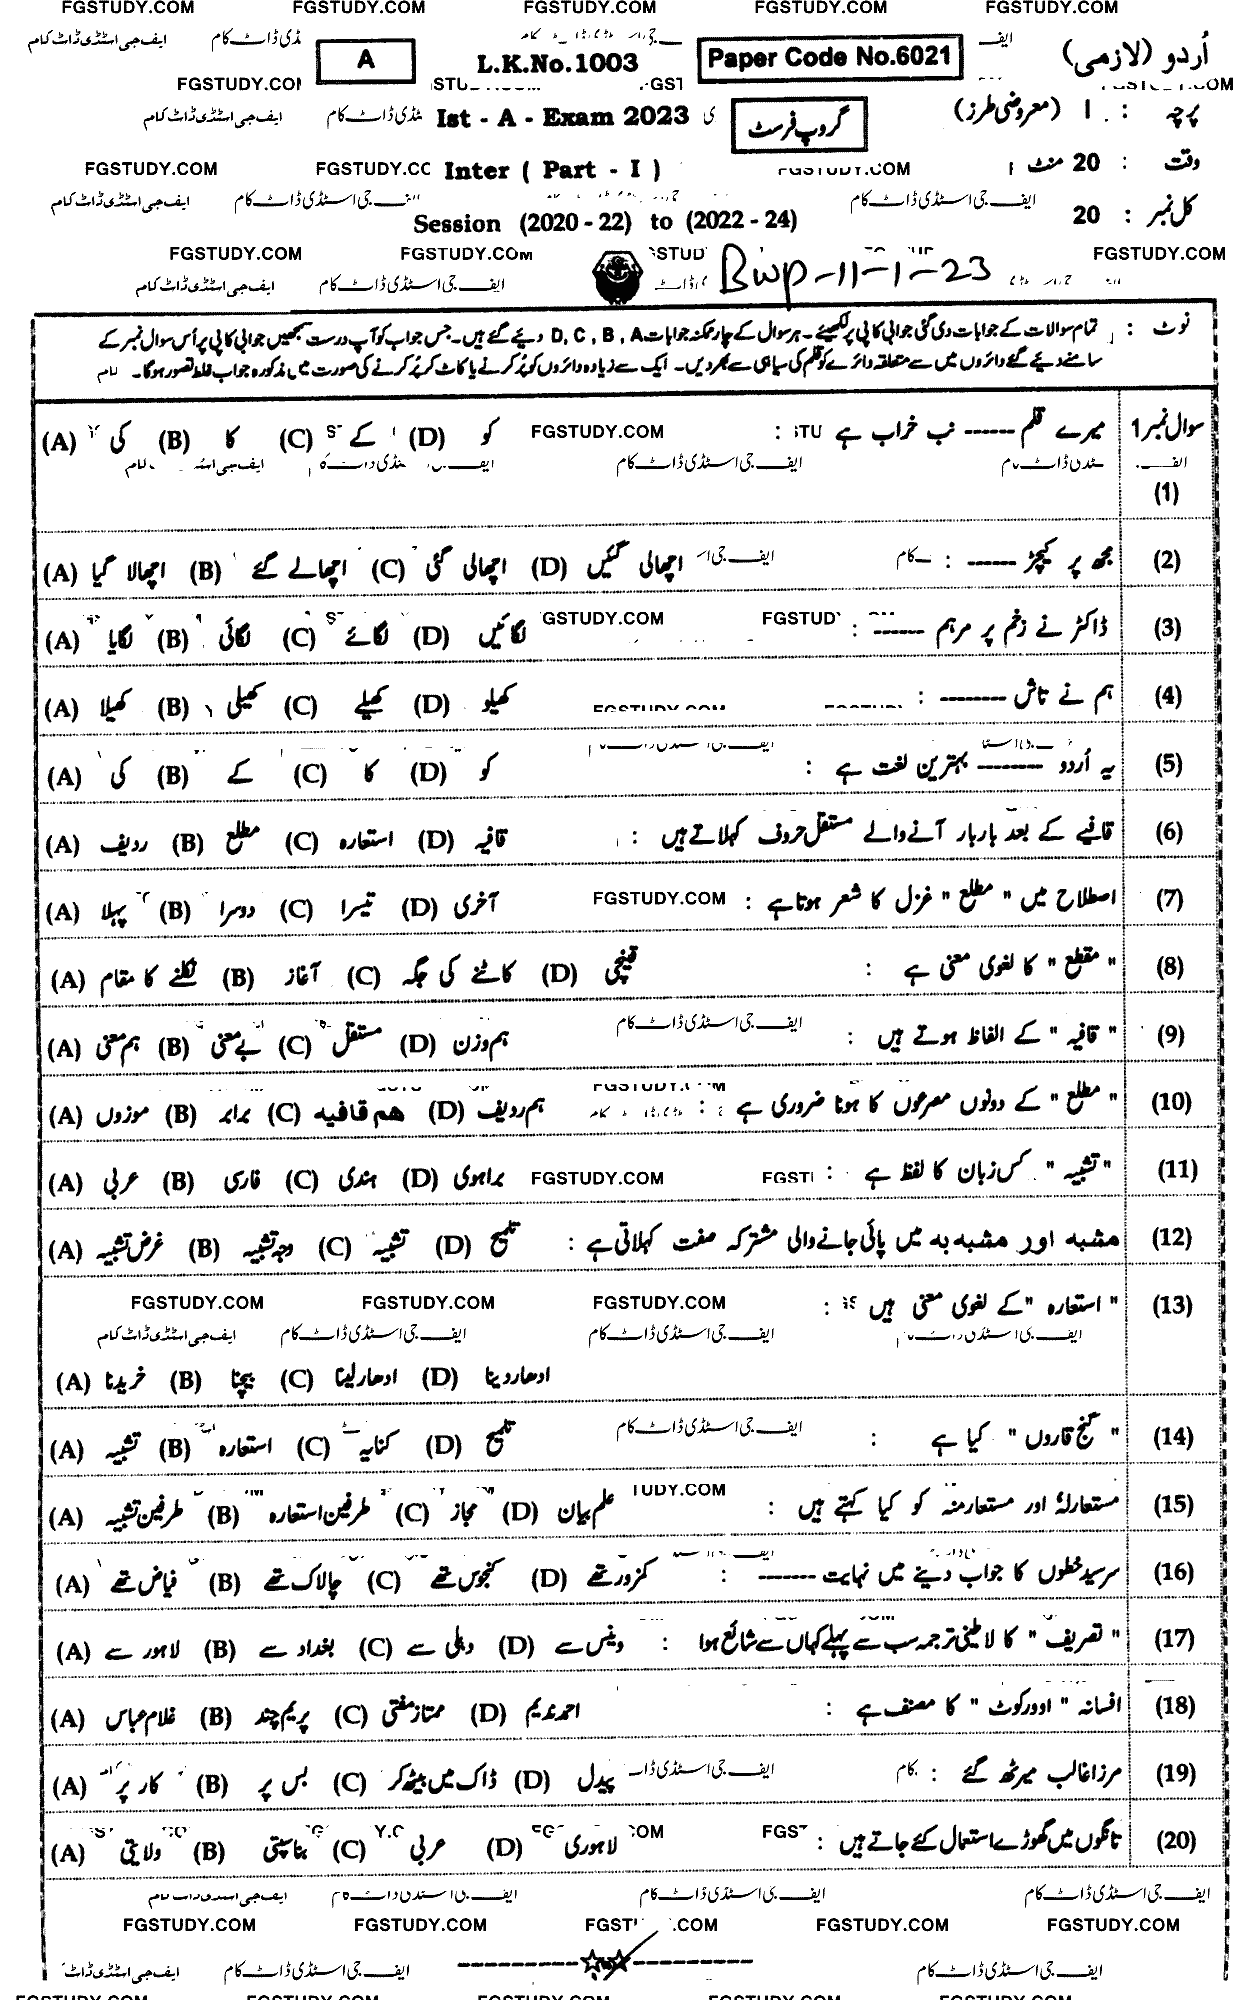 FGSTUDY.COM FGSTUDY.COM FGSTUDY.COM FGSTUDY.COM FGSTUDY.COM
اُردو (لازمی) Paper Code No.6021 L.K.No.1003 A
پرچہ : I (معروضی طرز) گروپ فرسٹ Ist - A - Exam 2023
وقت : 20 منٹ Inter ( Part - I )
کل نمبر : 20 Session (2020 - 22) to (2022 - 24)
Bwp-11-1-23
نوٹ : تمام سوالات کے جوابات دی گئی جوابی کاپی پر لکھیئے۔ ہر سوال کے چار ممکنہ جوابات D, C, B, A دیئے گئے ہیں۔ جس جواب کو آپ درست سمجھیں جوابی کاپی پر اُس سوال نمبر کے
سامنے دیئے گئے دائروں میں سے متعلقہ دائرے کو قلم کی سیاہی سے بھر دیں۔ ایک سے زیادہ دائروں کو پُر کرنے یا کاٹ کر پُر کرنے کی صورت میں مذکورہ جواب غلط تصور ہوگا۔
سوال نمبر 1 میرے قلم ------ نب خراب ہے : (A) کی (B) کا (C) کے (D) کو
(1)
(2) مجھ پر کیچڑ ----- : (A) اچھالا گیا (B) اچھالے گئے (C) اچھالی گئی (D) اچھالی گئیں
(3) ڈاکٹر نے زخم پر مرہم ------ : (A) لگایا (B) لگائی (C) لگائے (D) لگائیں
(4) ہم نے تاش -------- : (A) کھیلا (B) کھیلی (C) کھیلے (D) کھیلو
(5) یہ اُردو -------- بہترین لغت ہے : (A) کی (B) کے (C) کا (D) کو
(6) قافیے کے بعد بار بار آنے والے مستقل حروف کہلاتے ہیں : (A) ردیف (B) مطلع (C) استعارہ (D) قافیہ
(7) اصطلاح میں " مطلع " غزل کا شعر ہوتا ہے : (A) پہلا (B) دوسرا (C) تیسرا (D) آخری
(8) " مقطع " کا لغوی معنی ہے : (A) نکلنے کا مقام (B) آغاز (C) کاٹنے کی جگہ (D) قینچی
(9) " قافیہ " کے الفاظ ہوتے ہیں : (A) ہم معنی (B) بے معنی (C) مستقل (D) ہم وزن
(10) " مطلع " کے دونوں مصرعوں کا ہونا ضروری ہے : (A) موزوں (B) برابر (C) ہم قافیہ (D) ہم ردیف
(11) " تشبیہ " کس زبان کا لفظ ہے : (A) عربی (B) فارسی (C) ہندی (D) براہوی
(12) مشبہ اور مشبہ بہ میں پائی جانے والی مشترکہ صفت کہلاتی ہے : (A) غرض تشبیہ (B) وجہ تشبیہ (C) تشبیہ (D) تلمیح
(13) " استعارہ " کے لغوی معنی ہیں :
(A) خریدنا (B) بیچنا (C) ادھار لینا (D) ادھار دینا
(14) " گنج قاروں " کیا ہے : (A) تشبیہ (B) استعارہ (C) کنایہ (D) تلمیح
(15) مستعارلہٗ اور مستعارمنہ کو کیا کہتے ہیں : (A) طرفین تشبیہ (B) طرفین استعارہ (C) مجاز (D) علم بیان
(16) سرسید خطوں کا جواب دینے میں نہایت ------ : (A) فیاض تھے (B) چالاک تھے (C) کنجوس تھے (D) کمزور تھے
(17) " تصریف " کا لاطینی ترجمہ سب سے پہلے کہاں سے شائع ہوا : (A) لاہور سے (B) بغداد سے (C) دہلی سے (D) وینس سے
(18) افسانہ " اوورکوٹ " کا مصنف ہے : (A) غلام عباس (B) پریم چند (C) ممتاز مفتی (D) احمد ندیم
(19) مرزا غالب میرٹھ گئے : (A) کار پر (B) بس پر (C) ڈاک میں بیٹھ کر (D) پیدل
(20) تانگوں میں گھوڑے استعمال کئے جاتے ہیں : (A) ولایتی (B) بناسپتی (C) عربی (D) لاہوری
FGSTUDY.COM FGSTUDY.COM FGSTUDY.COM FGSTUDY.COM